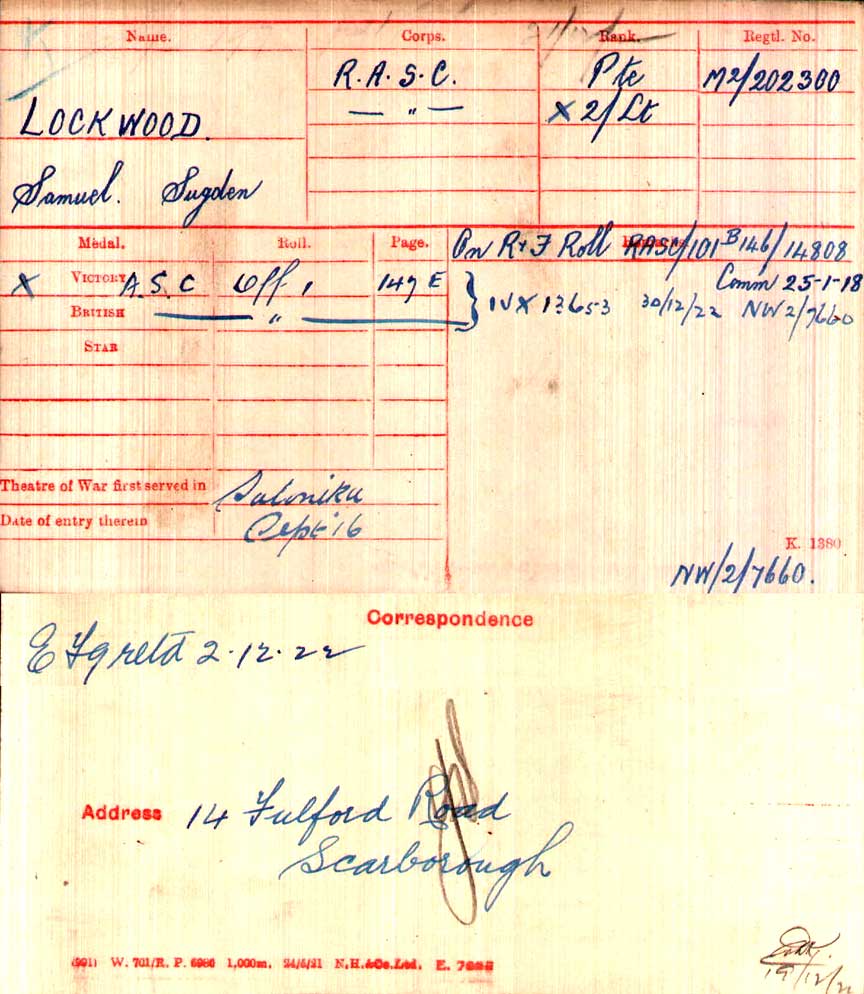 Name. Corps. Rank. Regtl. No.
R.A.S.C. Pte M2/202300
LOCKWOOD. — " — X 2/Lt
Samuel. Sugden
Medal. Roll. Page. On R & F Roll RASC/101 B146/14808
X VICTORY A.S.C Off, 147 E Comm 25-1-18
BRITISH " } IVX 13653 30/12/22 NW2/7660
STAR
Theatre of War first served in Salonika
Date of entry therein Sept 16
K. 1380
NW/2/7660.
Correspondence
2.12.22
Address 14 Fulford Road
Scarborough
W. 701/R. P. 6980 1,000m. 24/5/21 N.H.&Co.Ltd.